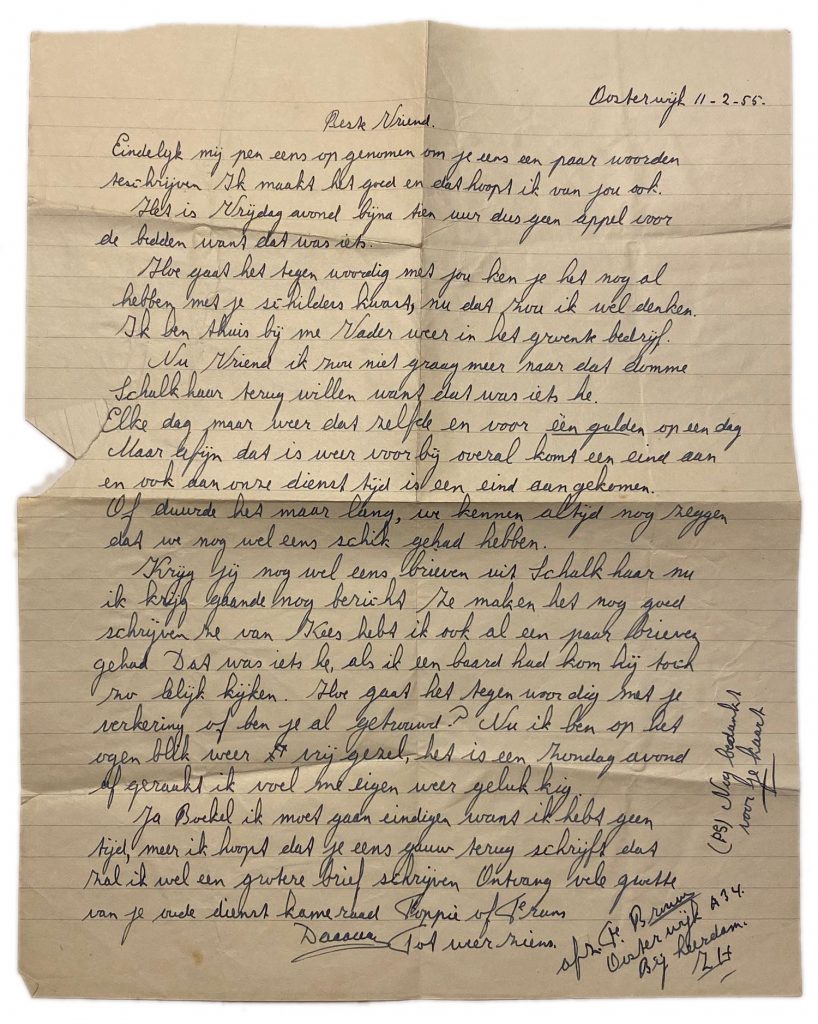 Oosterwijk 11-2-55.
Beste Vriend.
Eindelyk mij pen eens op genomen om je eens een paar woorden
teschrijven Ik maakt het goed en dat hoopt ik van jou ook.
Het is Vrijdag avond bijna tien uur dus geen appel voor
de bedden want dat was iets.
Hoe gaat het tegen woordig met jou ken je het nog al
hebben met je schilders kwast, nu dat zou ik wel denken.
Ik ben thuis bij me Vader weer in het groente bedrijf.
Nu Vriend ik zou niet graag meer naar dat domme
Schalkhaar terug willen want dat was iets he.
Elke dag maar weer dat zelfde en voor één gulden op een dag
Maar afijn dat is weer voor bij overal komt een eind aan
en ook aan onze dienst tijd is een eind aangekomen.
Of duurde het maar lang, we kennen altijd nog zeggen
dat we nog wel eens schik gehad hebben.
Krijg jij nog wel eens brieven uit Schalkhaar nu
ik krijg gaande nog bericht ze maken het nog goed
schrijven ze van Kees hebt ik ook al een paar brieven
gehad Dat was iets he, als ik een baard had kom hij toch
zo lelijk kijken. Hoe gaat het tegen woordig met je
verkering of ben je al getrouwd? Nu ik ben op het
ogen blik weer vrij gezel, het is een zondag avond
af geraakt ik voel me eigen weer geluk kig.
Ja Boekel ik moet gaan eindigen want ik hebt geen
tijd, meer ik hoopt dat je eens gauw terug schrijft dat
zal ik wel een grotere brief schrijven Ontvang vele groette
van je oude dienst kameraad Poppie of Frans
Daaaag Tot weer ziens.
afz. Fr. Bruun
Oosterwijk A34.
Bij Leerdam.
Z H
(PS) Nog bedankt
voor je kaart